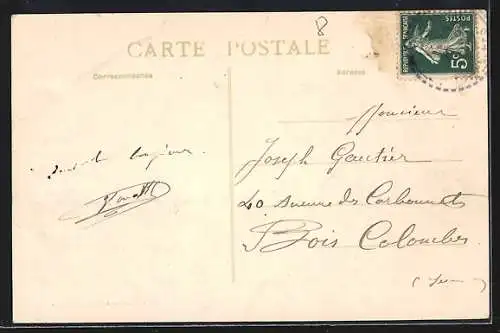 8
CARTE POSTALE
Correspondance
Adresse
REPUBLIQUE FRANÇAISE
POSTES
5c
Monsieur
Joseph Gautier
40 Avenue des Carbonnets
Bois Colombes
(Seine)